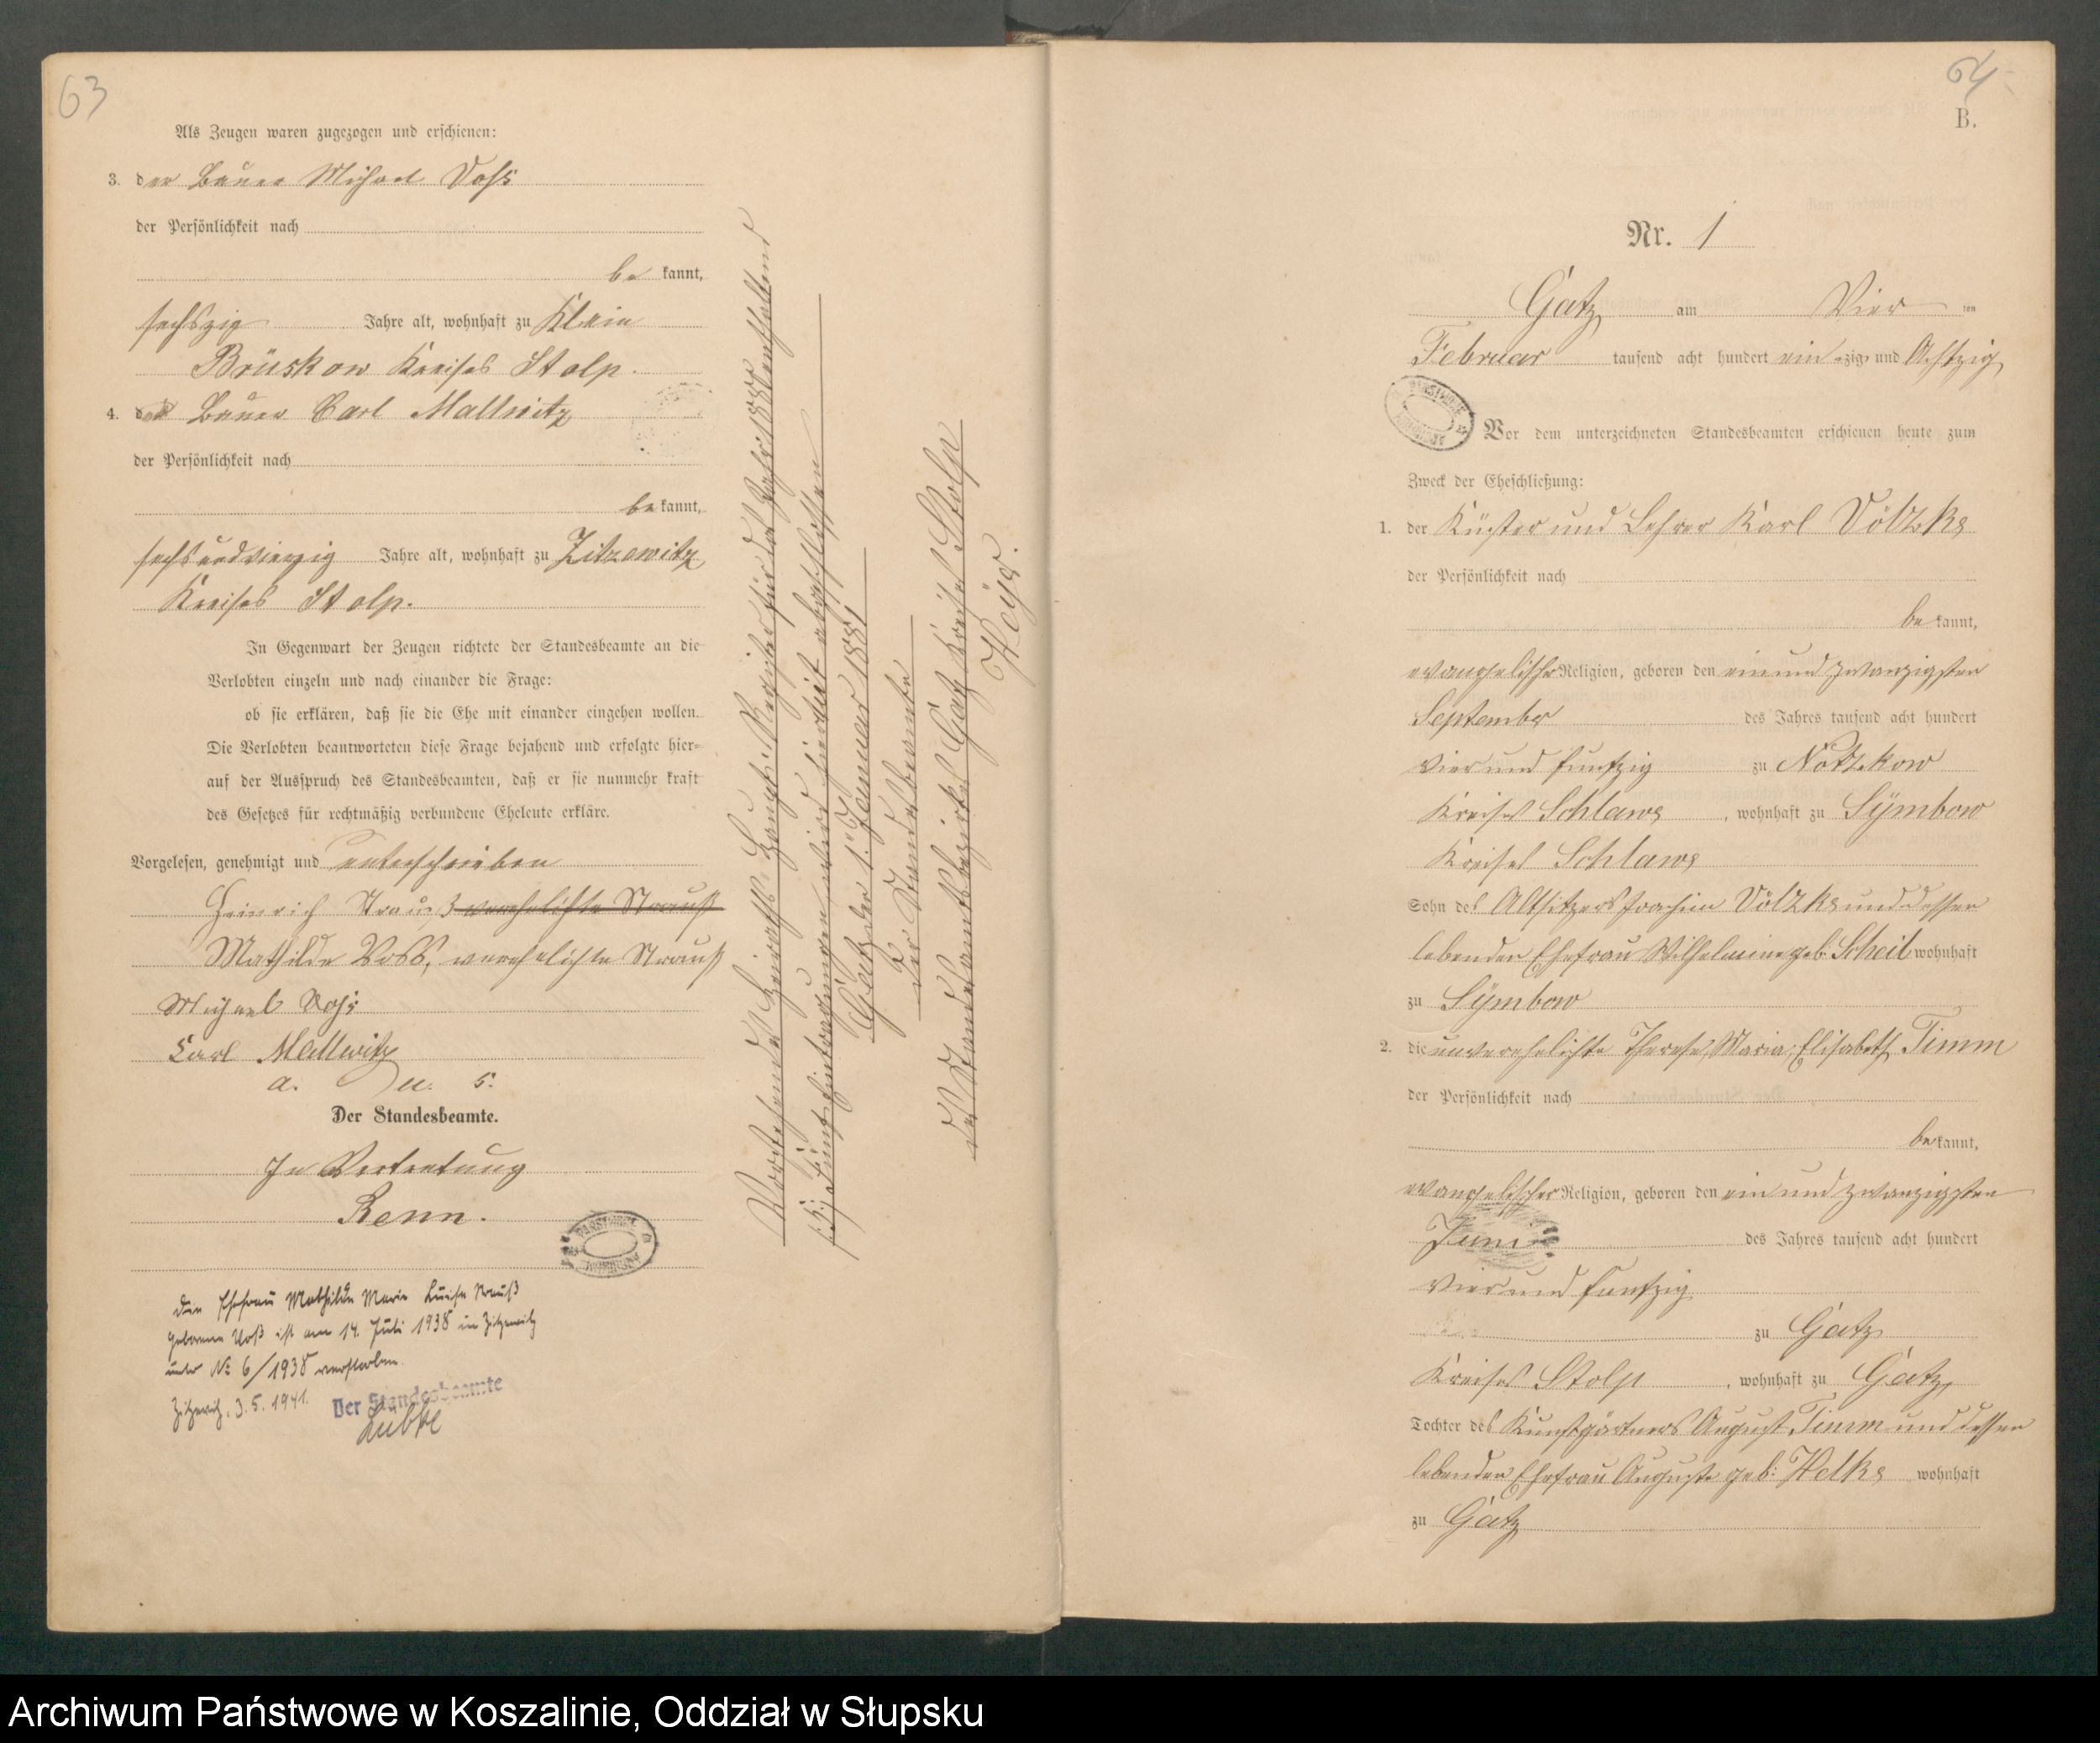 63
Als Zeugen waren zugezogen und erschienen:
3. der Bauer Michael Voss
der Persönlichkeit nach
be kannt,
sechszig Jahre alt, wohnhaft zu Klein
Brüskow Kreises Stolp.
4. der Bauer Carl Mallwitz
der Persönlichkeit nach
be kannt,
sechsundvierzig Jahre alt, wohnhaft zu Zitzewitz
Kreises Stolp.
In Gegenwart der Zeugen richtete der Standesbeamte an die
Verlobten einzeln und nach einander die Frage:
ob sie erklären, daß sie die Ehe mit einander eingehen wollen.
Die Verlobten beantworteten diese Frage bejahend und erfolgte hier-
auf der Ausspruch des Standesbeamten, daß er sie nunmehr kraft
des Gesetzes für rechtmäßig verbundene Eheleute erkläre.
Vorgelesen, genehmigt und unterschrieben
Heinrich Strauß verehelichte Strauß
Mathilde Voss, verehelichte Strauß
Michael Voss
Carl Mallwitz
a. u. s.
Der Standesbeamte.
In Vertretung
Renn.
Die Ehefrau Mathilde Marie Luise Strauß
geborene Voß ist am 14. Juli 1938 in Zitzewitz
unter No 6/1938 verstorben.
Zitzewitz, 3.5.1941.
Der Standesbeamte
Lübke
Vorstehendes Heiraths-Haupt-Register für das Jahr 1880 enthaltend
(5) Fünf Eintragungen wird hiermit abgeschlossen
Gatz den 1. Januar 1881
Der Standesbeamte
des Standesamtsbezirkes Gatz Kreises Stolp
Heyer.
64
B.
Nr. 1
Gatz am Vier ten
Februar tausend acht hundert ein zig und Achtzig
Vor dem unterzeichneten Standesbeamten erschienen heute zum
Zweck der Eheschließung:
1. der Küster und Lehrer Karl Völzke
der Persönlichkeit nach
be kannt,
evangelischer Religion, geboren den einundzwanzigsten
September des Jahres tausend acht hundert
vier und funfzig zu Notzkow
Kreises Schlawe, wohnhaft zu Symbow
Kreises Schlawe
Sohn des Altsitzers Joachim Völzke und dessen
lebenden Ehefrau Wilhelmine geb. Scheil wohnhaft
zu Symbow
2. die unverehelichte Therese, Maria, Elisabeth Timm
der Persönlichkeit nach
be kannt,
evangelischer Religion, geboren den ein und zwanzigsten
Juni des Jahres tausend acht hundert
vier und funfzig
zu Gatz
Kreises Stolp, wohnhaft zu Gatz
Tochter des Kunstgärtners August Timm und dessen
lebenden Ehefrau Auguste geb: wohnhaft
zu Gatz
Archiwum Państwowe w Koszalinie, Oddział w Słupsku